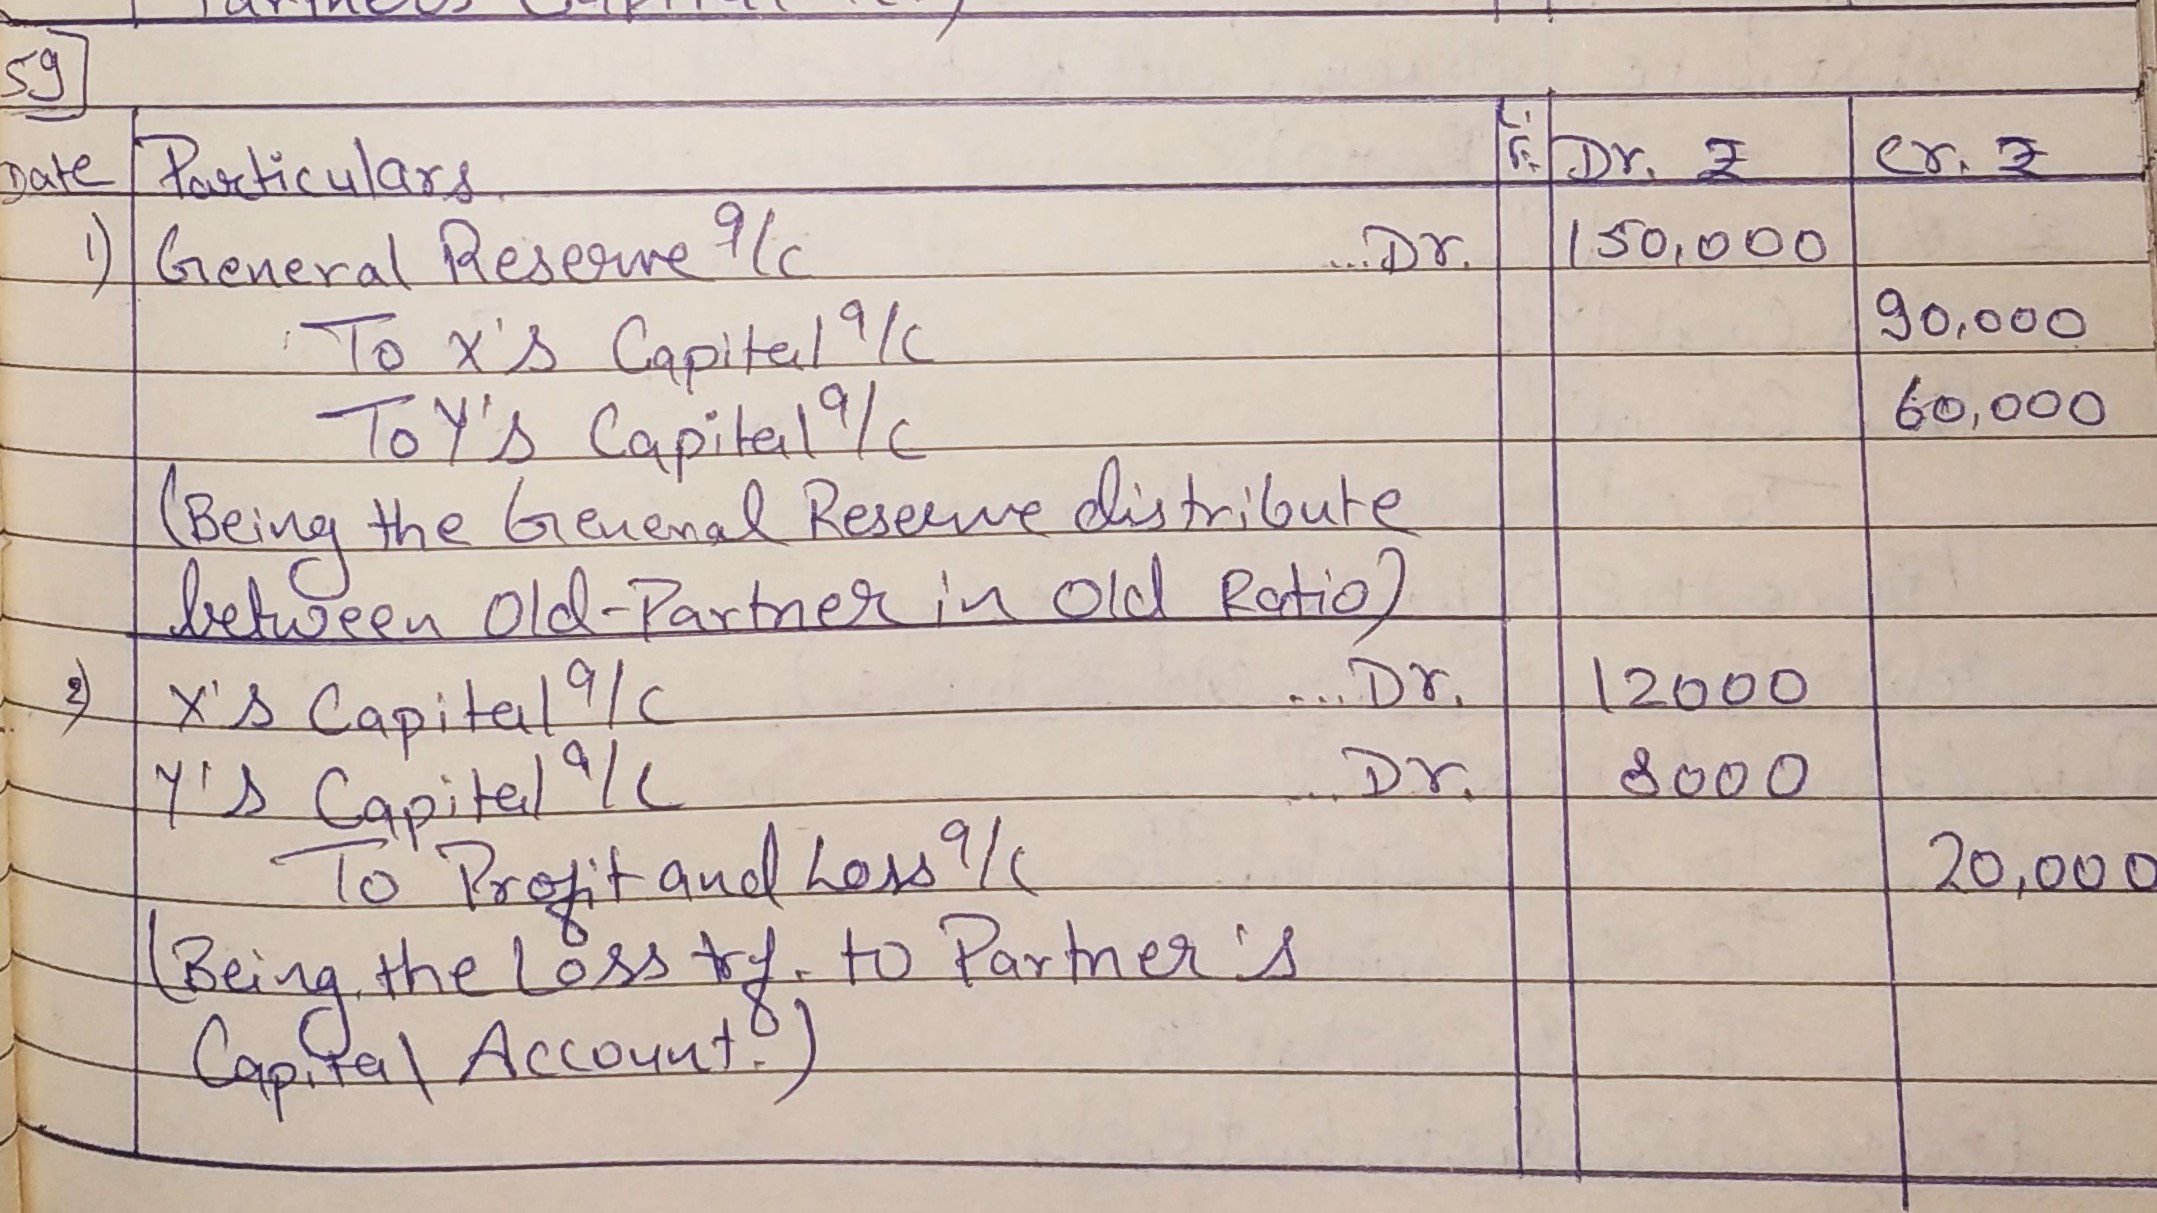 Partners Capital
59
Date Particulars L.F. Dr. ₹ Cr. ₹
1) General Reserve a/c ...Dr. 150,000
To X's Capital a/c 90,000
To Y's Capital a/c 60,000
(Being the General Reserve distribute
between Old-Partner in Old Ratio)
2) X's Capital a/c ...Dr. 12000
Y's Capital a/c ...Dr. 8000
To Profit and Loss a/c 20,000
(Being the Loss trf. to Partner's
Capital Account.)